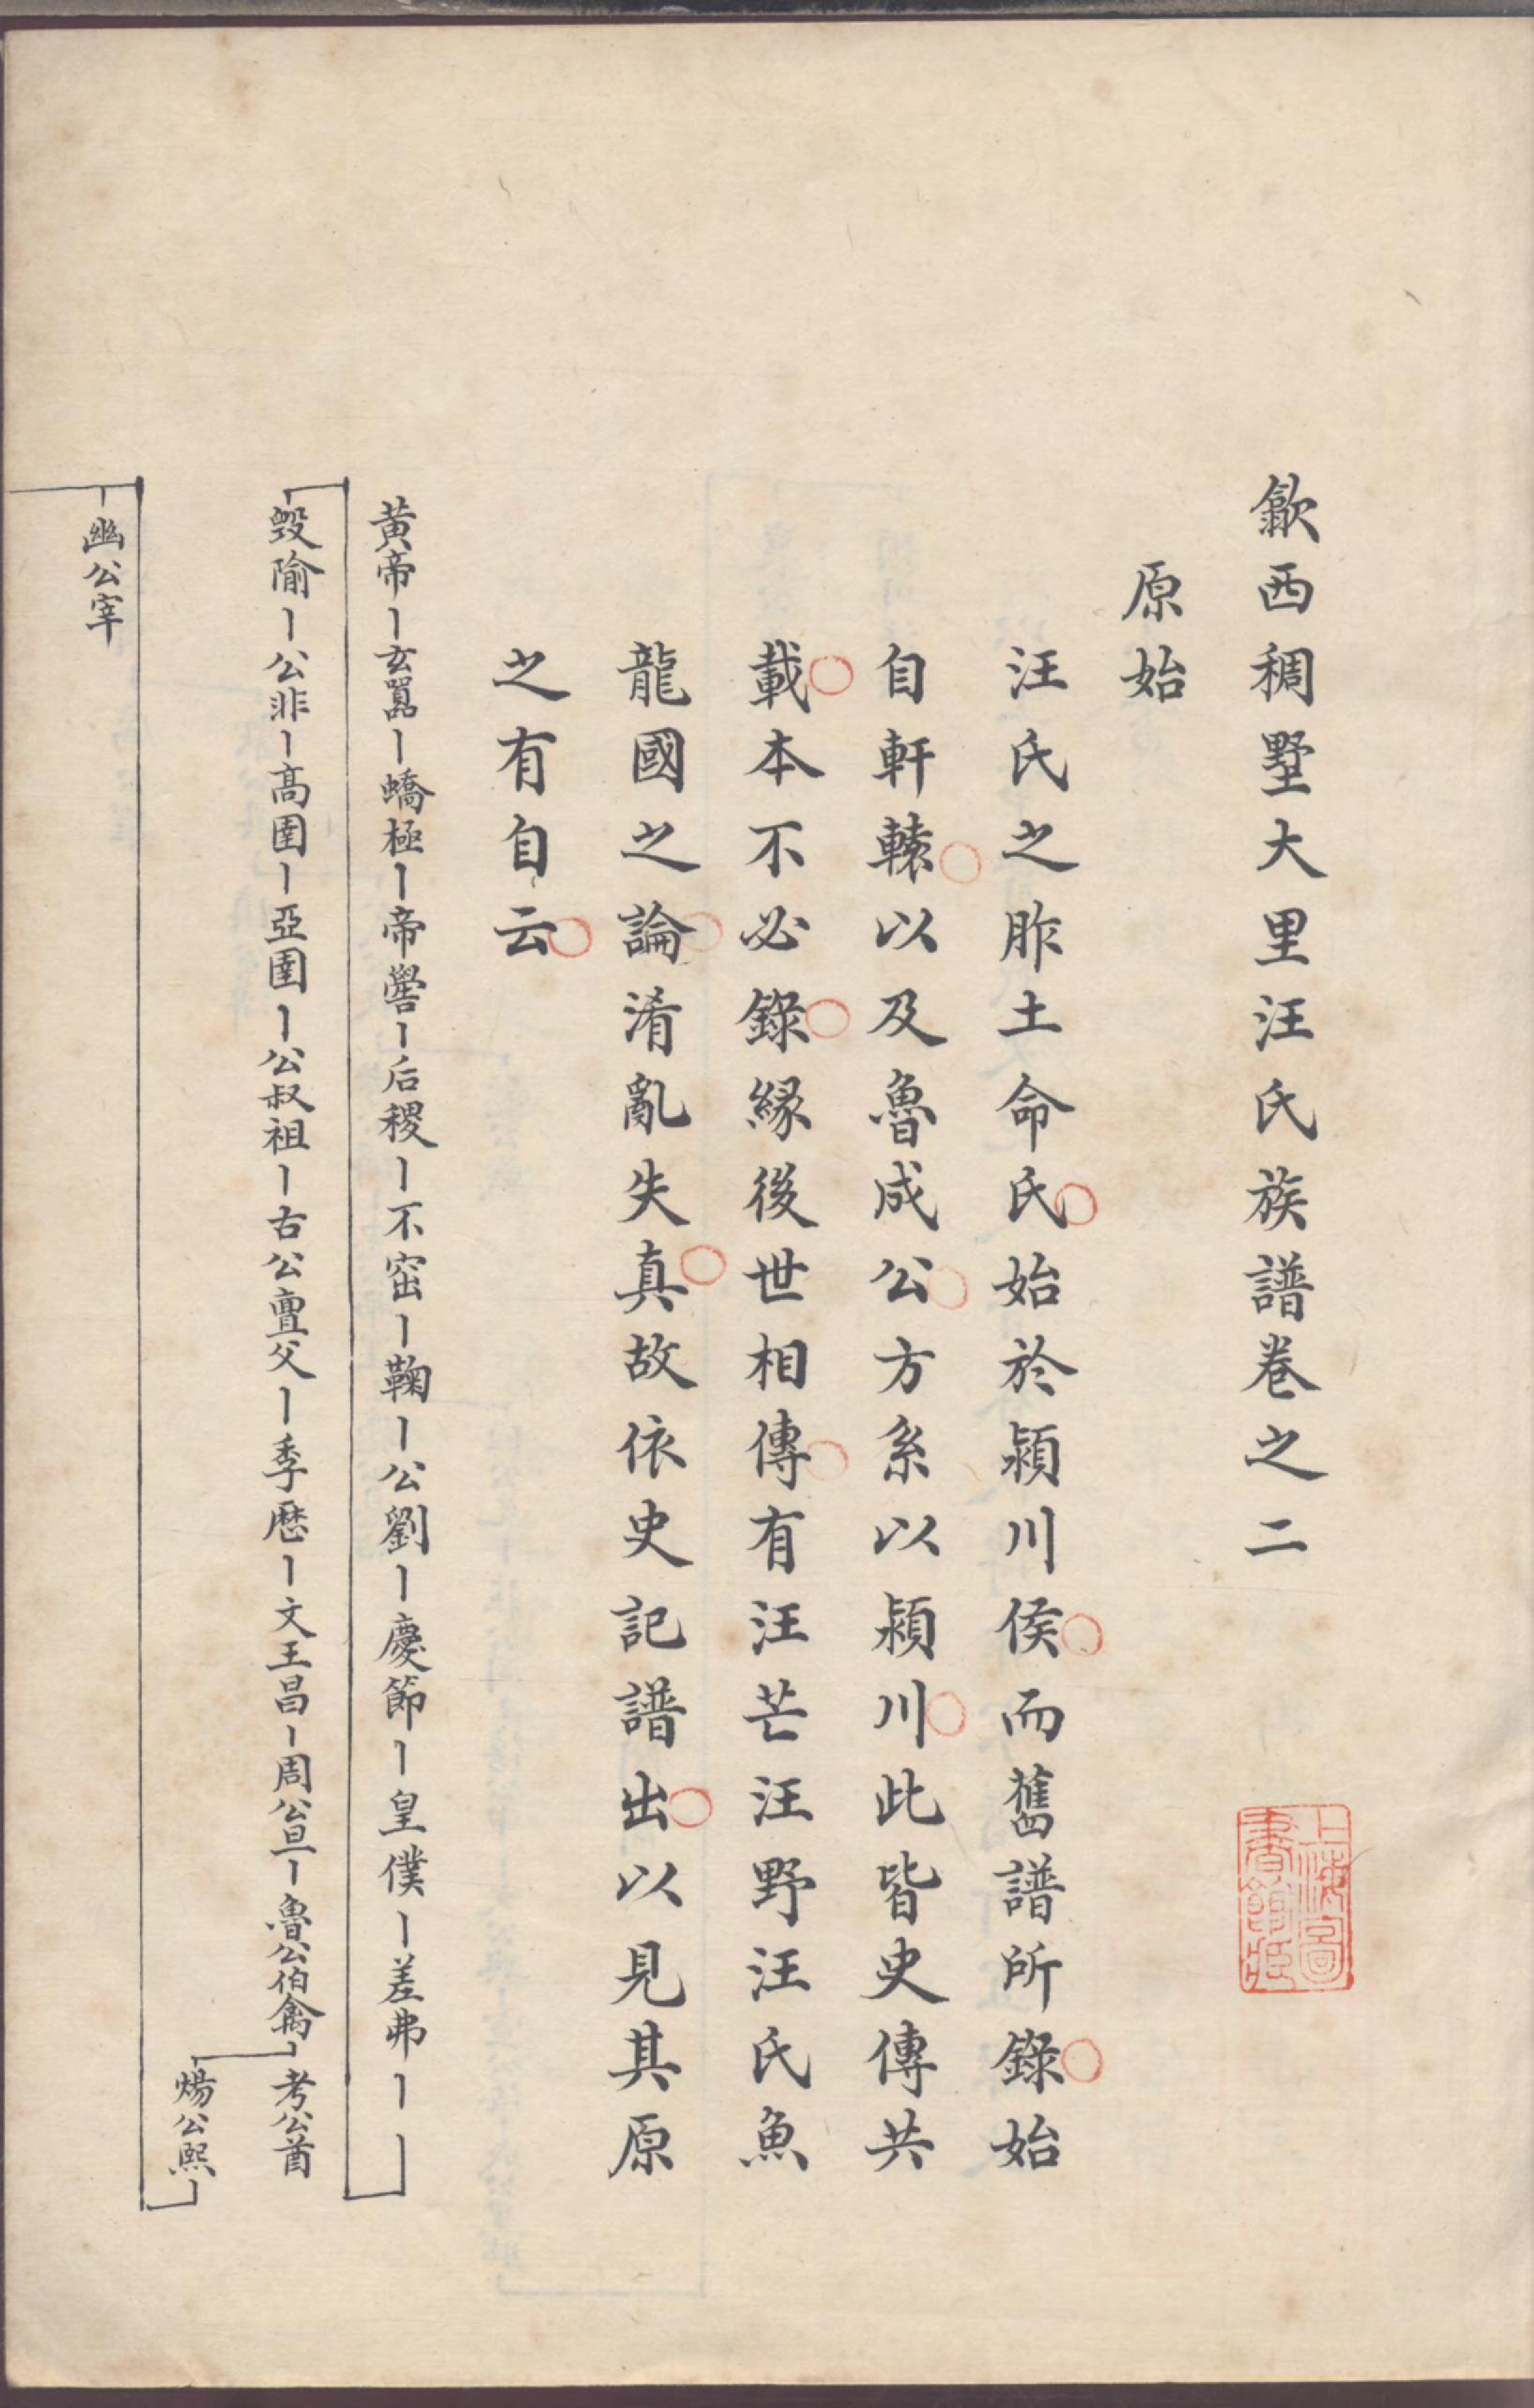 歙西稠墅大里汪氏族譜卷之二
原始
汪氏之胙土命氏始於潁川侯而舊譜所錄始
自軒轅以及魯成公方系以潁川此皆史傳共
載本不必錄緣後世相傳有汪芒汪野汪氏魚
龍國之論淆亂失真故依史記譜出以見其原
之有自云
黃帝玄囂蟜極帝嚳后稷不窋鞠公劉慶節皇僕差弗
毀隃公非高圉亞圉公叔祖古公亶父季歷文王昌周公旦魯公伯禽考公酋
煬公熙
幽公宰
上海圖書館藏